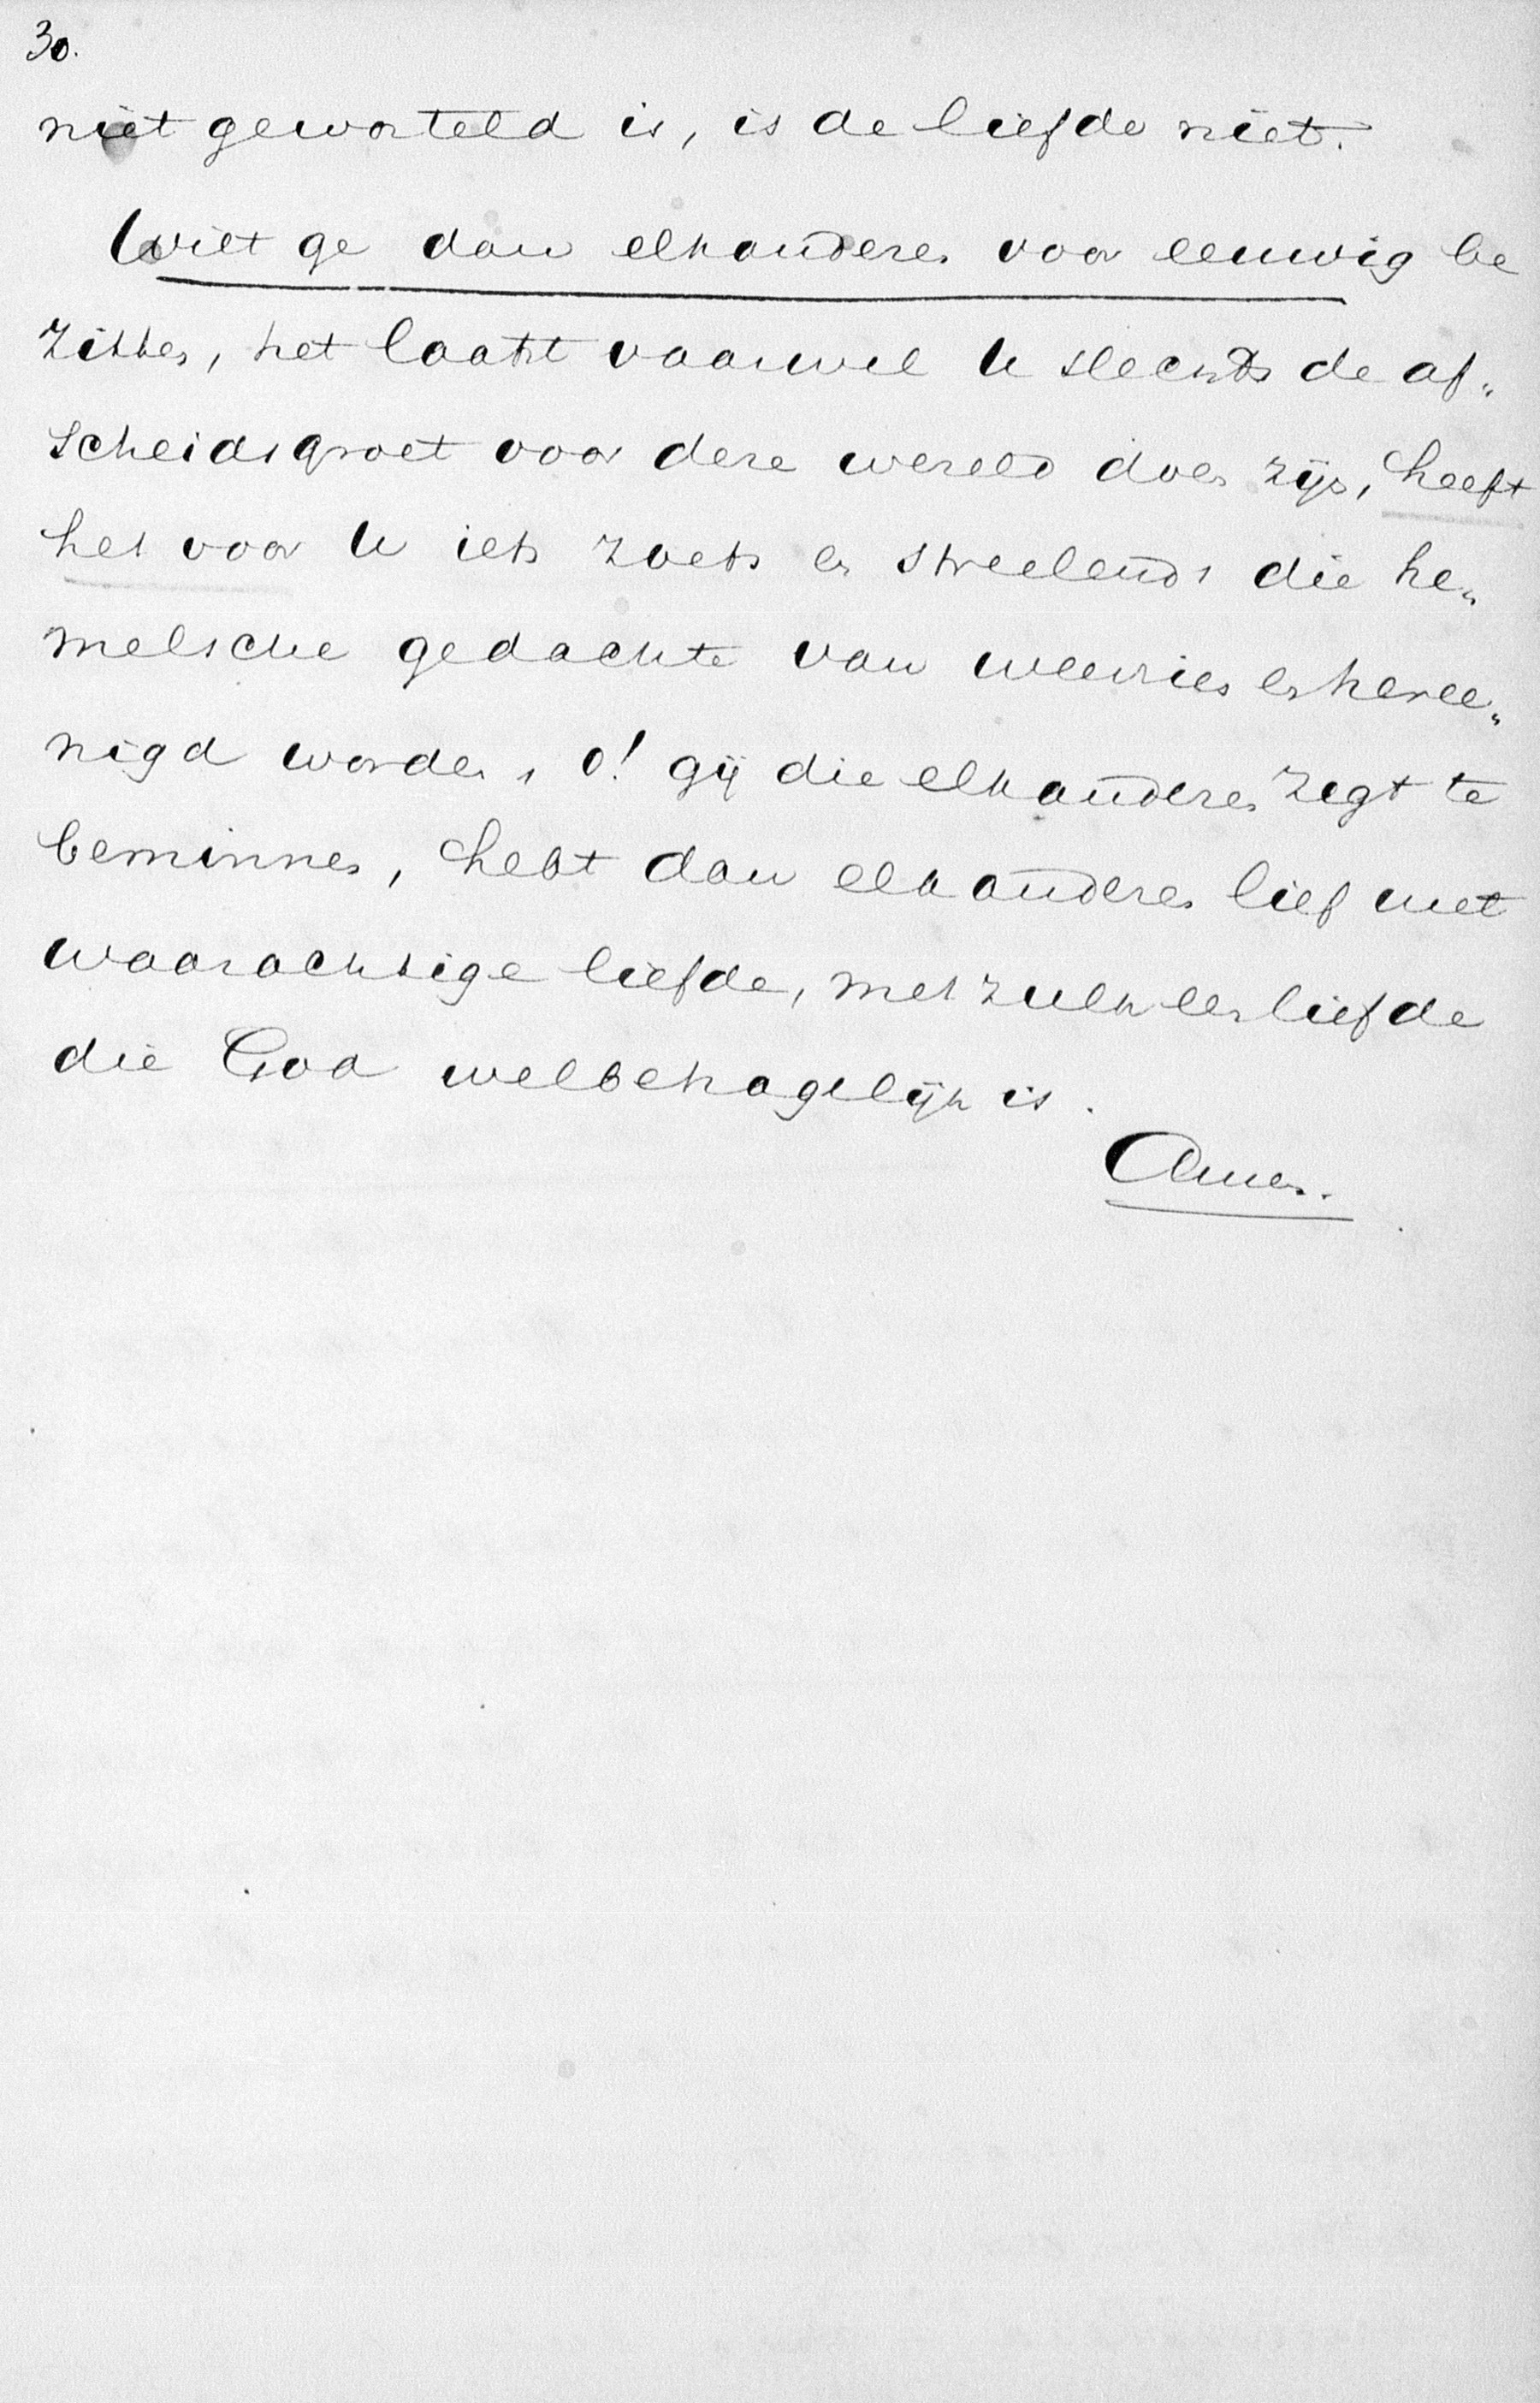 30.
niet geworteld is, is de liefde niet.
Wilt ge dan elkanderen voor eeuwig be
zitten, het laatst vaarwel U slechts de af„
scheidsgroet voor deze wereld doen zijn, heeft
het voor U iets zoets en streelends die he„
melsche gedachte van weerzien en hervee„
nigd worden, o! gij die elkanderen zegt te
beminnen, hebt dan elkanderen lief met
waarachtige liefde, met zulk een liefde
die God welbehagelijk is.
Amen.